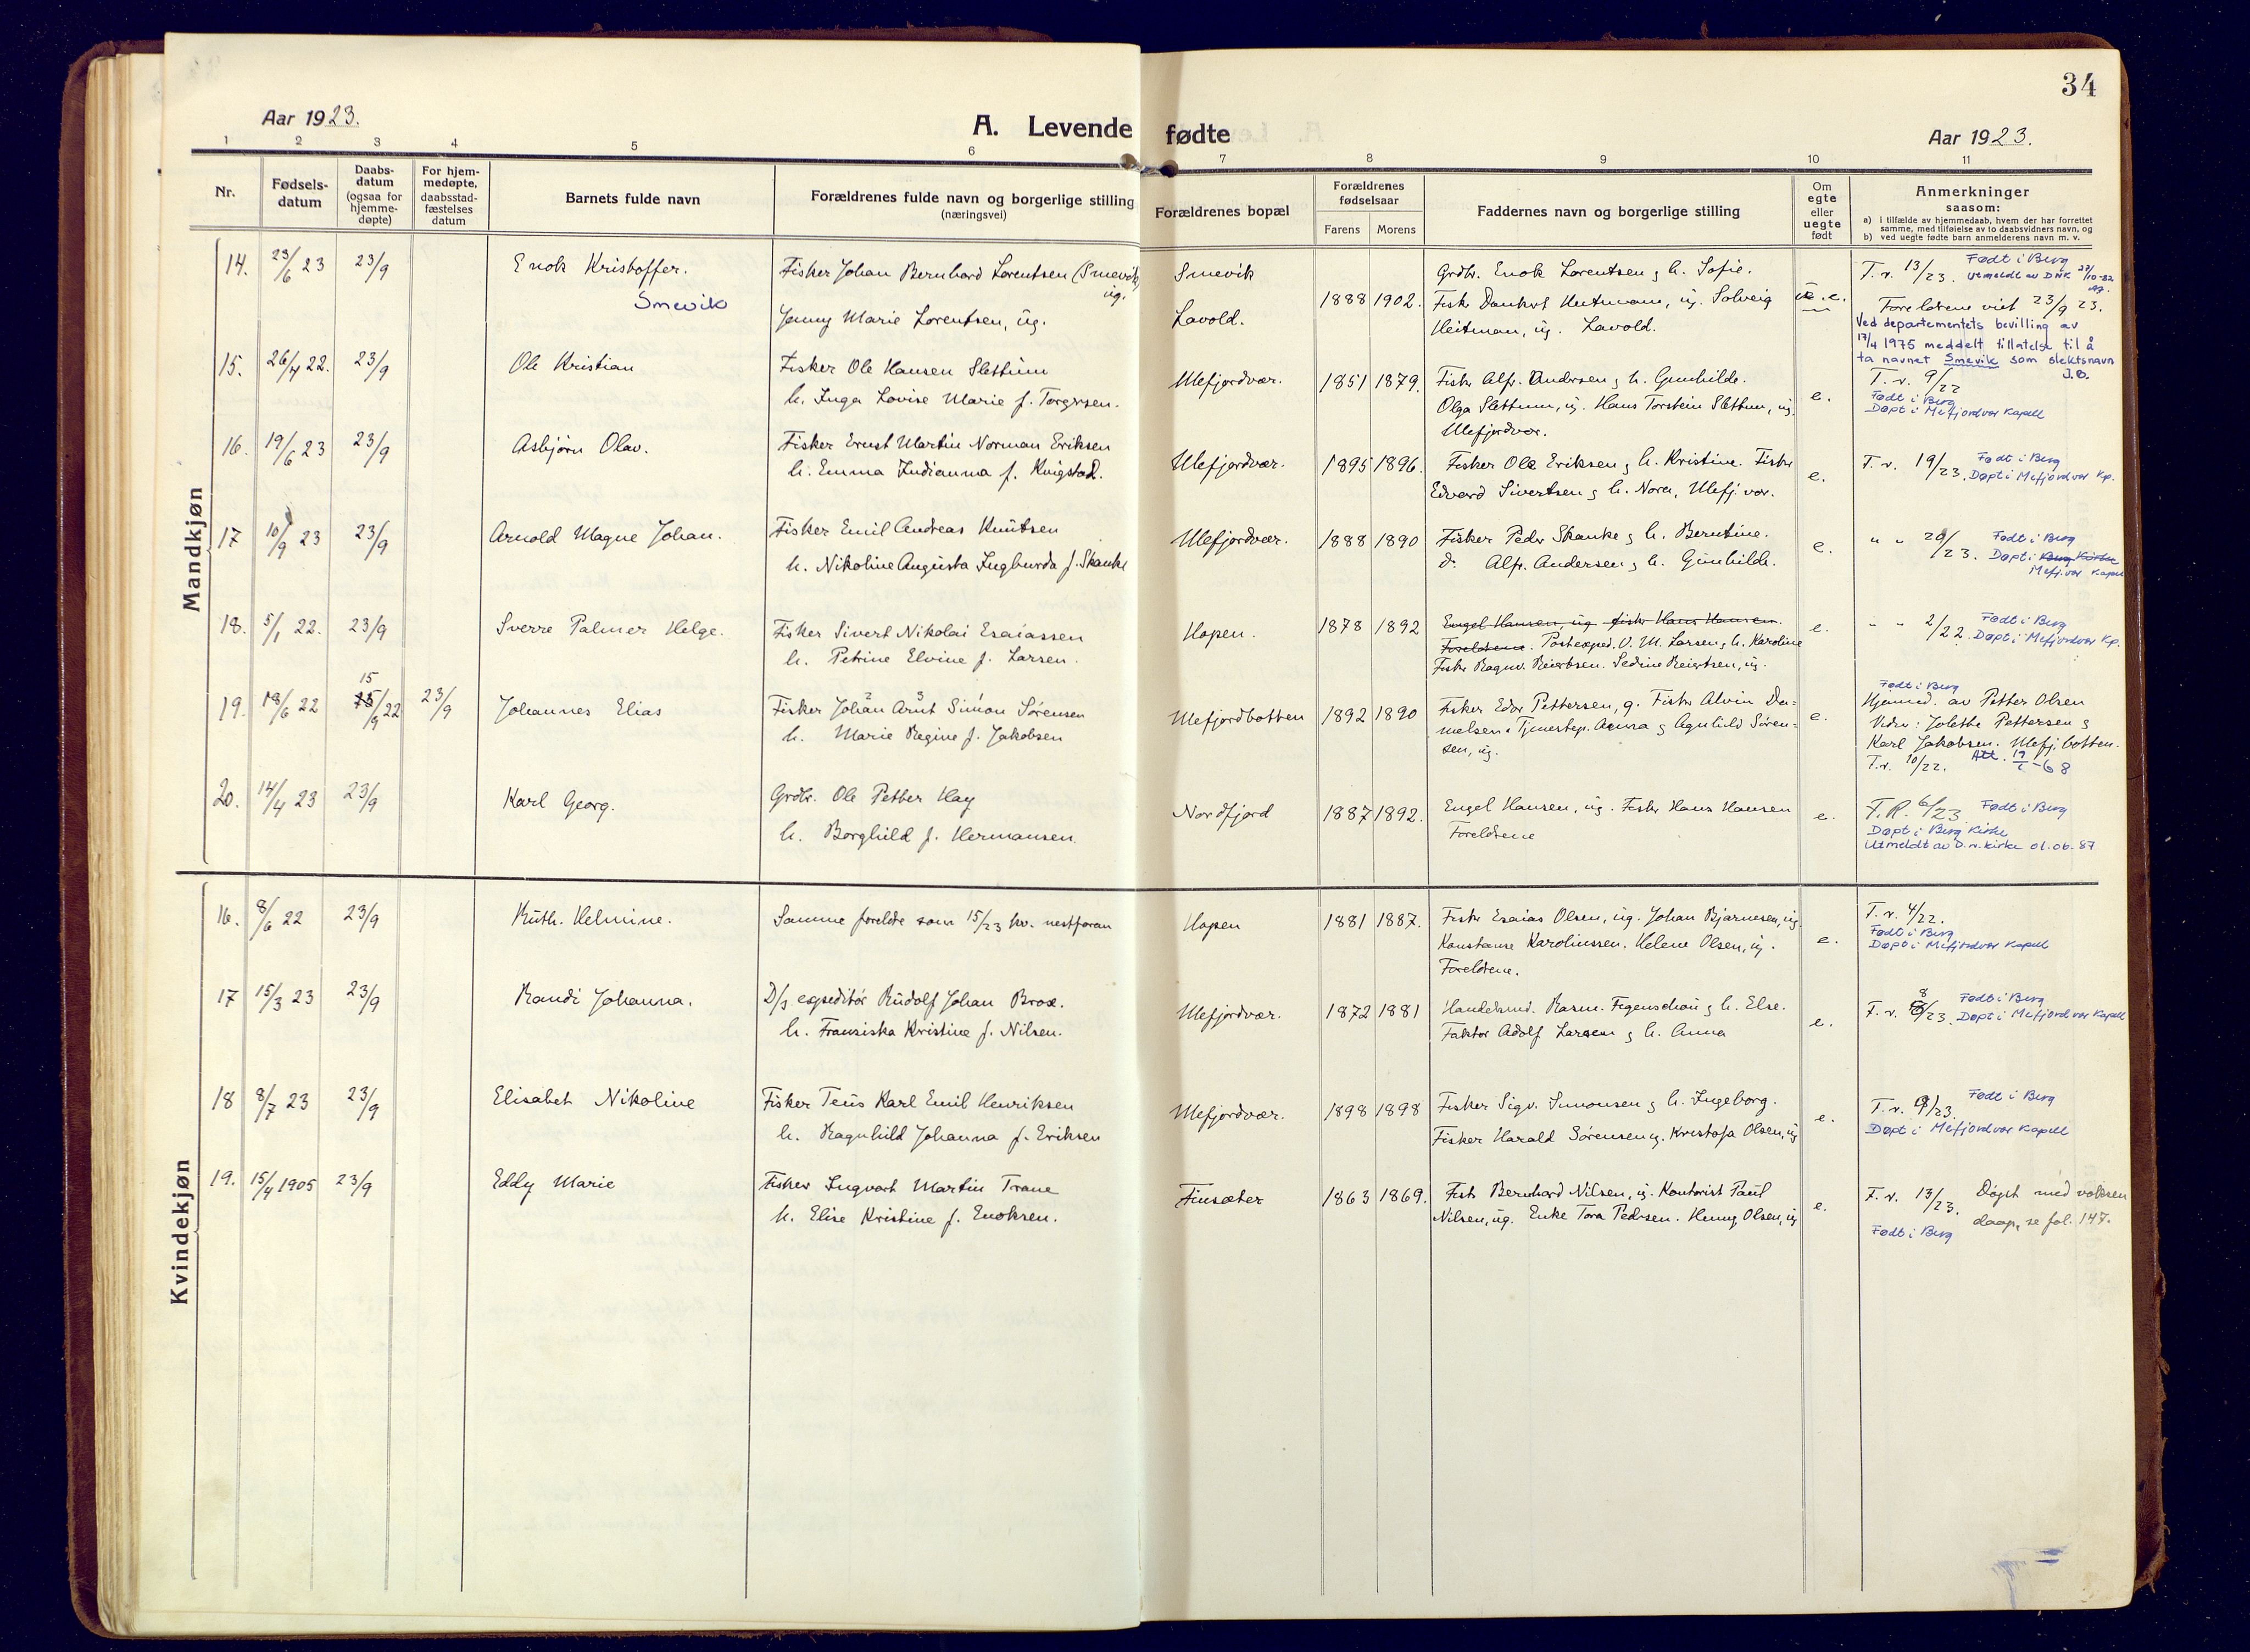 34
Aar 1923.
A. Levende fødte
Aar 1923.
1 2 3 4 5 6 7 8 9 10 11
Nr.
Fødsels-
datum
Daabs-
datum
(ogsaa for
hjemme-
døpte)
For hjem-
medøpte,
daabsstad-
fæstelses
datum
Barnets fulde navn
Forældrenes fulde navn og borgerlige stilling
(næringsvei)
Forældrenes bopæl
Forældrenes
fødselsaar
Farens Morens
Faddernes navn og borgerlige stilling
Om
egte
eller
uegte
født
Anmerkninger
saasom:
a) i tilfælde av hjemmedaab, hvem der har forrettet
samme, med tilføielse av to daabsvidners navn, og
b) ved uegte fødte barn anmelderens navn m. v.
Mandkjøn
14. 23/6 23 23/9 Enok Kristoffer.
Smevik
Fisker Johan Bernhard Lorentsen (Smevik)
ug.
Jenny Marie Lorentsen, ug.
Smevik
Lavold.
1888 1902.
Grdbr. Enok Lorentsen & h. Sofie.
Fisker Heitmann, ug. Solveig
Heitman, ug. Lavold.
u. e.
T. r. 13/23. Født i Berg
Utmeldt av DNK 27/10-82
Foreldrene viet 23/9 23.
Ved departementets bevilling av
17/4 1975 meddelt tillatelse til å
ta navnet Smevik som slektsnavn
J.B.
15. 26/4 22. 23/9 Ole Kristian
Fisker Ole Hansen Slettum
h. Inga Lovise Marie f. Torgersen.
Mefjordvær. 1851 1879.
Fisker Alfr. Andersen & h. Gunhilde.
Olga Slettum, ug. Hans Torstein Slettum, ug.
Mefjordvær.
e.
T. r. 9/22
Født i Berg
Døpt i Mefjordvær Kapell
16. 19/6 23 23/9 Asbjørn Olav.
Fisker Ernst Martin Norman Eriksen
h. Emma Indianna f. Kvigstad.
Mefjordvær. 1895 1896.
Fisker Ole Eriksen & h. Kristine. Fisker
Edvard Sivertsen & h. Nora, Mefj. vær.
e.
T. r. 19/23. Født i Berg
Døpt i Mefjordvær Kp.
17 10/9 23 23/9 Arnold Magne Johan.
Fisker Emil Andreas Knutsen
h. Nikoline Augusta Ingburda f. Skanke
Mefjordvær. 1888 1890
Fisker Peder Skanke & h. Berntine.
do Alfr. Andersen & h. Gunhilde.
e.
" " 20/23. Født i Berg
Døpt i Berg Kirke
Mefj.vær Kapell
18. 5/1 22. 23/9 Sverre Palmer Helge.
Fisker Sivert Nikolai Esaiassen
h. Petrine Elvine f. Larsen.
Hopen. 1878 1892
Engel Hansen, ug. fisker Hans Hansen.
Foreldrene. Postexped. O. M. Larsen, h. Karoline
Fisker Ragnv. Reiertsen. Sedine Reiertsen, ug.
e.
" " 2/22. Født i Berg
Døpt i Mefjordvær Kp.
19. 18/6 22 15/9 22 23/9 Johannes Elias
Fisker Johan Arnt Simon Sørensen
h. Marie Regine f. Jakobsen
Mefjordbotten 1892 1890
Fisker Edv Pettersen, g. Fisker Alvin Da-
nielsen. Tjenestep. Anna & Agnhild Søren-
sen, ug.
e.
Født i Berg
Hjemmed. av Petter Olsen
Vidn: Jolethe Pettersen &
Karl Jakobsen. Mefj. botten.
T.r. 10/22. Att. 19/1-68
20. 14/4 23 23/9 Karl Georg.
Grdbr. Ole Petter Hay
h. Borghild f. Hermansen.
Nordfjord 1887 1892.
Engel Hansen, ug. Fisker Hans Hansen
Foreldrene
e.
T.R. 6/23. Født i Berg
Døpt i Berg Kirke
Utmeldt av D.n. kirke 01.06.87
Kvindekjøn
16. 8/6 22 23/9 Ruth. Helmine.
Samme foreldre som 15/23 kv. nestforan
Hopen 1881 1887.
Fisker Esaias Olsen, ug. Johan Bjarnesen, ug.
Konstanse Karoliussen. Helene Olsen, ug.
Foreldrene.
e.
T. r. 4/22.
Født i Berg
Døpt i Mefjordvær Kapell
17 15/3 23 23/9 Randi Johanna.
D/s expeditør Rudolf Johan Brox.
h. Fransiska Kristine f. Nilsen.
Mefjordvær. 1872 1881
Handelsmd. Rasm. Figenschou & h. Else.
Faktor Adolf Larsen & h. Anna
e.
T. r. 8/23. Født i Berg
Døpt i Mefjordvær Kapell
18 8/7 23 23/9 Elisabet Nikoline
Fisker Teus Karl Emil Henriksen
h. Ragnhild Johanna f. Eriksen
Mefjordvær. 1898 1898
Fisker Sigv. Simonsen & h. Ingeborg.
Fisker Harald Sørensen g. Kristofa Olsen, ug
e.
T. r. 9/23. Født i Berg
Døpt i Mefjordvær Kapell
19. 15/4 1905 23/9 Eddy Marie
Fisker Ingvart Martin Trane
h. Elise Kristine f. Enoksen.
Finsæter 1863 1869.
Fisk. Bernhard Nilsen, ug. Kontorist Paul
Nilsen, ug. Enke Tora Pedersen. Henny Olsen, ug
e.
T. r. 13/23. Døpt med voksen
daap, se fol. 147.
Født i Berg